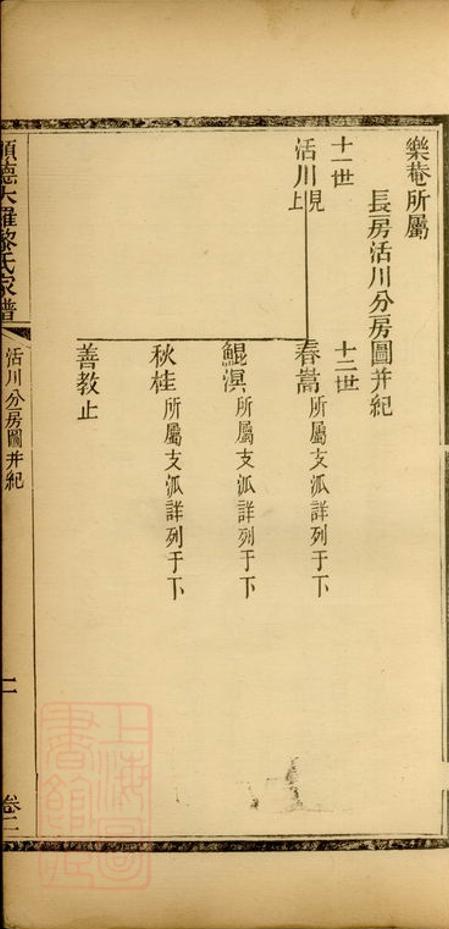 樂菴所屬
長房活川分房圖并紀
十一世
十二世
活川見上
春嵩所屬支派詳列于下
鯤溟所屬支派詳列于下
秋桂所屬支派詳列于下
善教止
順德大羅黎氏家譜
活川分房圖并紀
卷二
上海圖書館藏